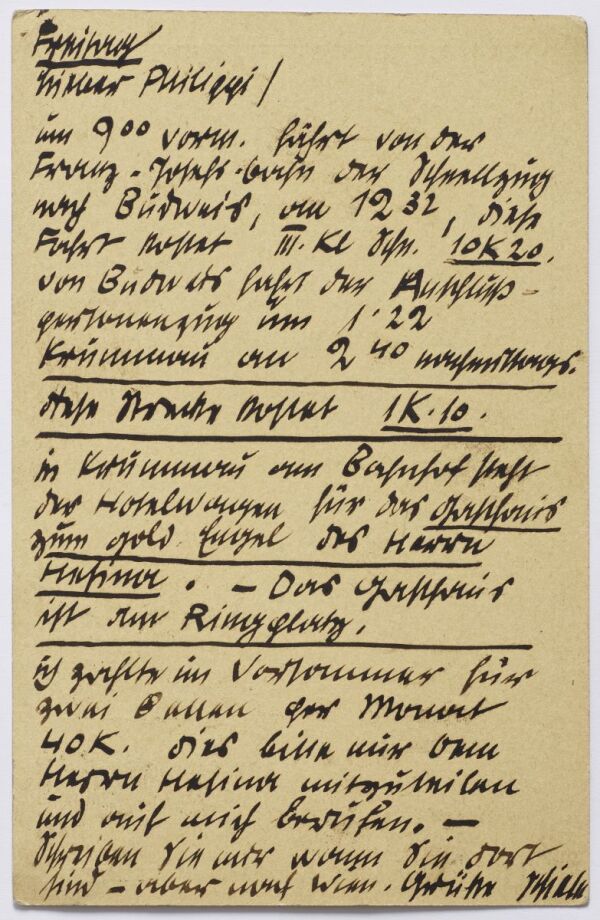 Freitag
Lieber Philippi!
um 9⁰⁰ vorm. fährt von der
Franz-Josefs-bahn der Schnellzug
nach Budweis, an 12³², diese
Fahrt kostet III. Kl Schn. 10K20.
von Budweis fährt der Anschluß-
personenzug um 1·22
Krummau an 2⁴⁰ nachmittags.
diese Strecke kostet 1K·10.
in Krummau am Bahnhof steht
der Hotelwagen für das Gasthaus
zum gold Engel des Herrn
Nesina. – Das Gasthaus
ist am Ringplatz.
ich zahlte im Vorsommer für
zwei Betten per Monat
40K. dies bitte nur dem
Herrn Nesina mitzuteilen
und auf mich berufen. –
Schreiben Sie mir wann Sie dort
sind – aber nach Wien. Grüße Schiele